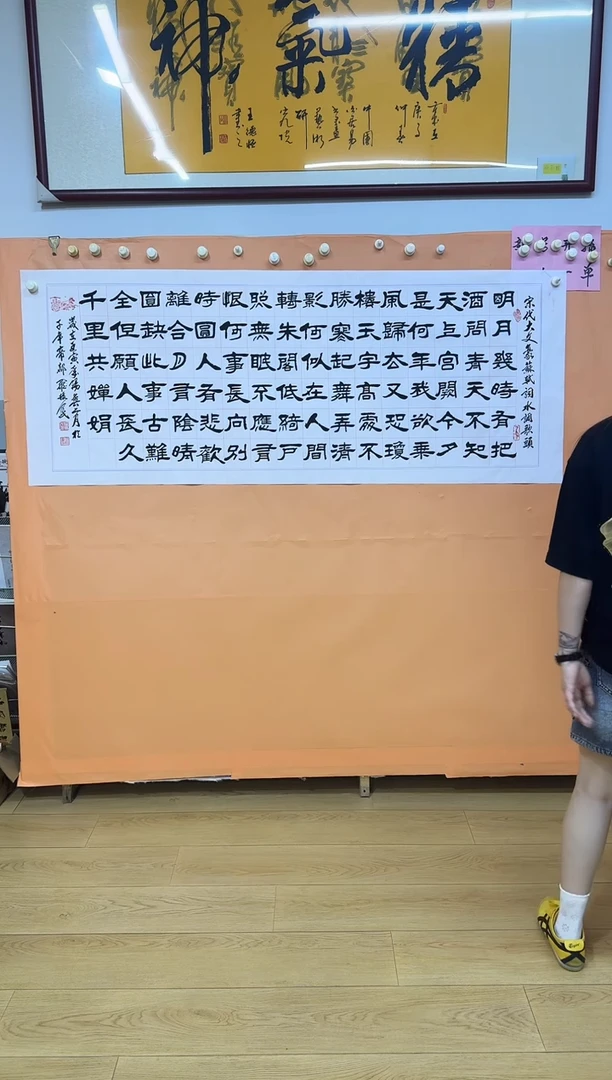 氣
神
仲春
中國
藝術
研
究院
單
宋代大文豪蘇軾詞水調歌頭
明月幾時有把
酒問青天不知
天上宮闕今夕
是何年我欲乘
風歸去又恐瓊
樓玉宇高處不
勝寒起舞弄清
影何似在人間
轉朱閣低綺戶
照無眠不應有
恨何事長向別
時圓人有悲歡
離合月有陰晴
圓缺此事古難
全但願人長久
千里共嬋娟
歲在庚寅年陽春三月於